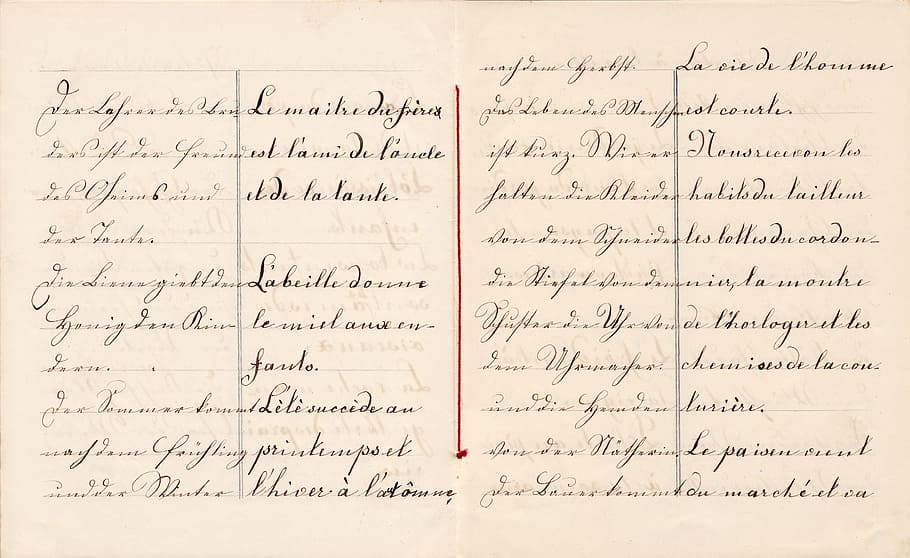 Der Lehrer des Bru
ders ist der Freund
des Oheims und
der Tante.
Die Biene giebt den
Honig den Kin-
dern.
Der Sommer kommt
nach dem Frühling
und der Winter
Le maitre du frères
est l'ami de l'oncle
et de la tante.
L'abeille donne
le miel aux en-
fants.
L'été succède au
printemps et
l'hiver à l'atômne,
nach dem Herbst.
Das Leben des Mensch
ist kurz. Wir er
halten die Kleider
von dem Schneider
die Stiefel von dem
Schuster die Uhr von
dem Uhrmacher.
und die Hemden
von der Nätherin
Der Bauer kommt
La vie de l'homme
est courte.
Nous recevon les
habits du tailleur
les bottes du cordon-
nier, la montre
de l'horloger et les
chemises de la cou-
turière.
Le paisen vient
du marché et va